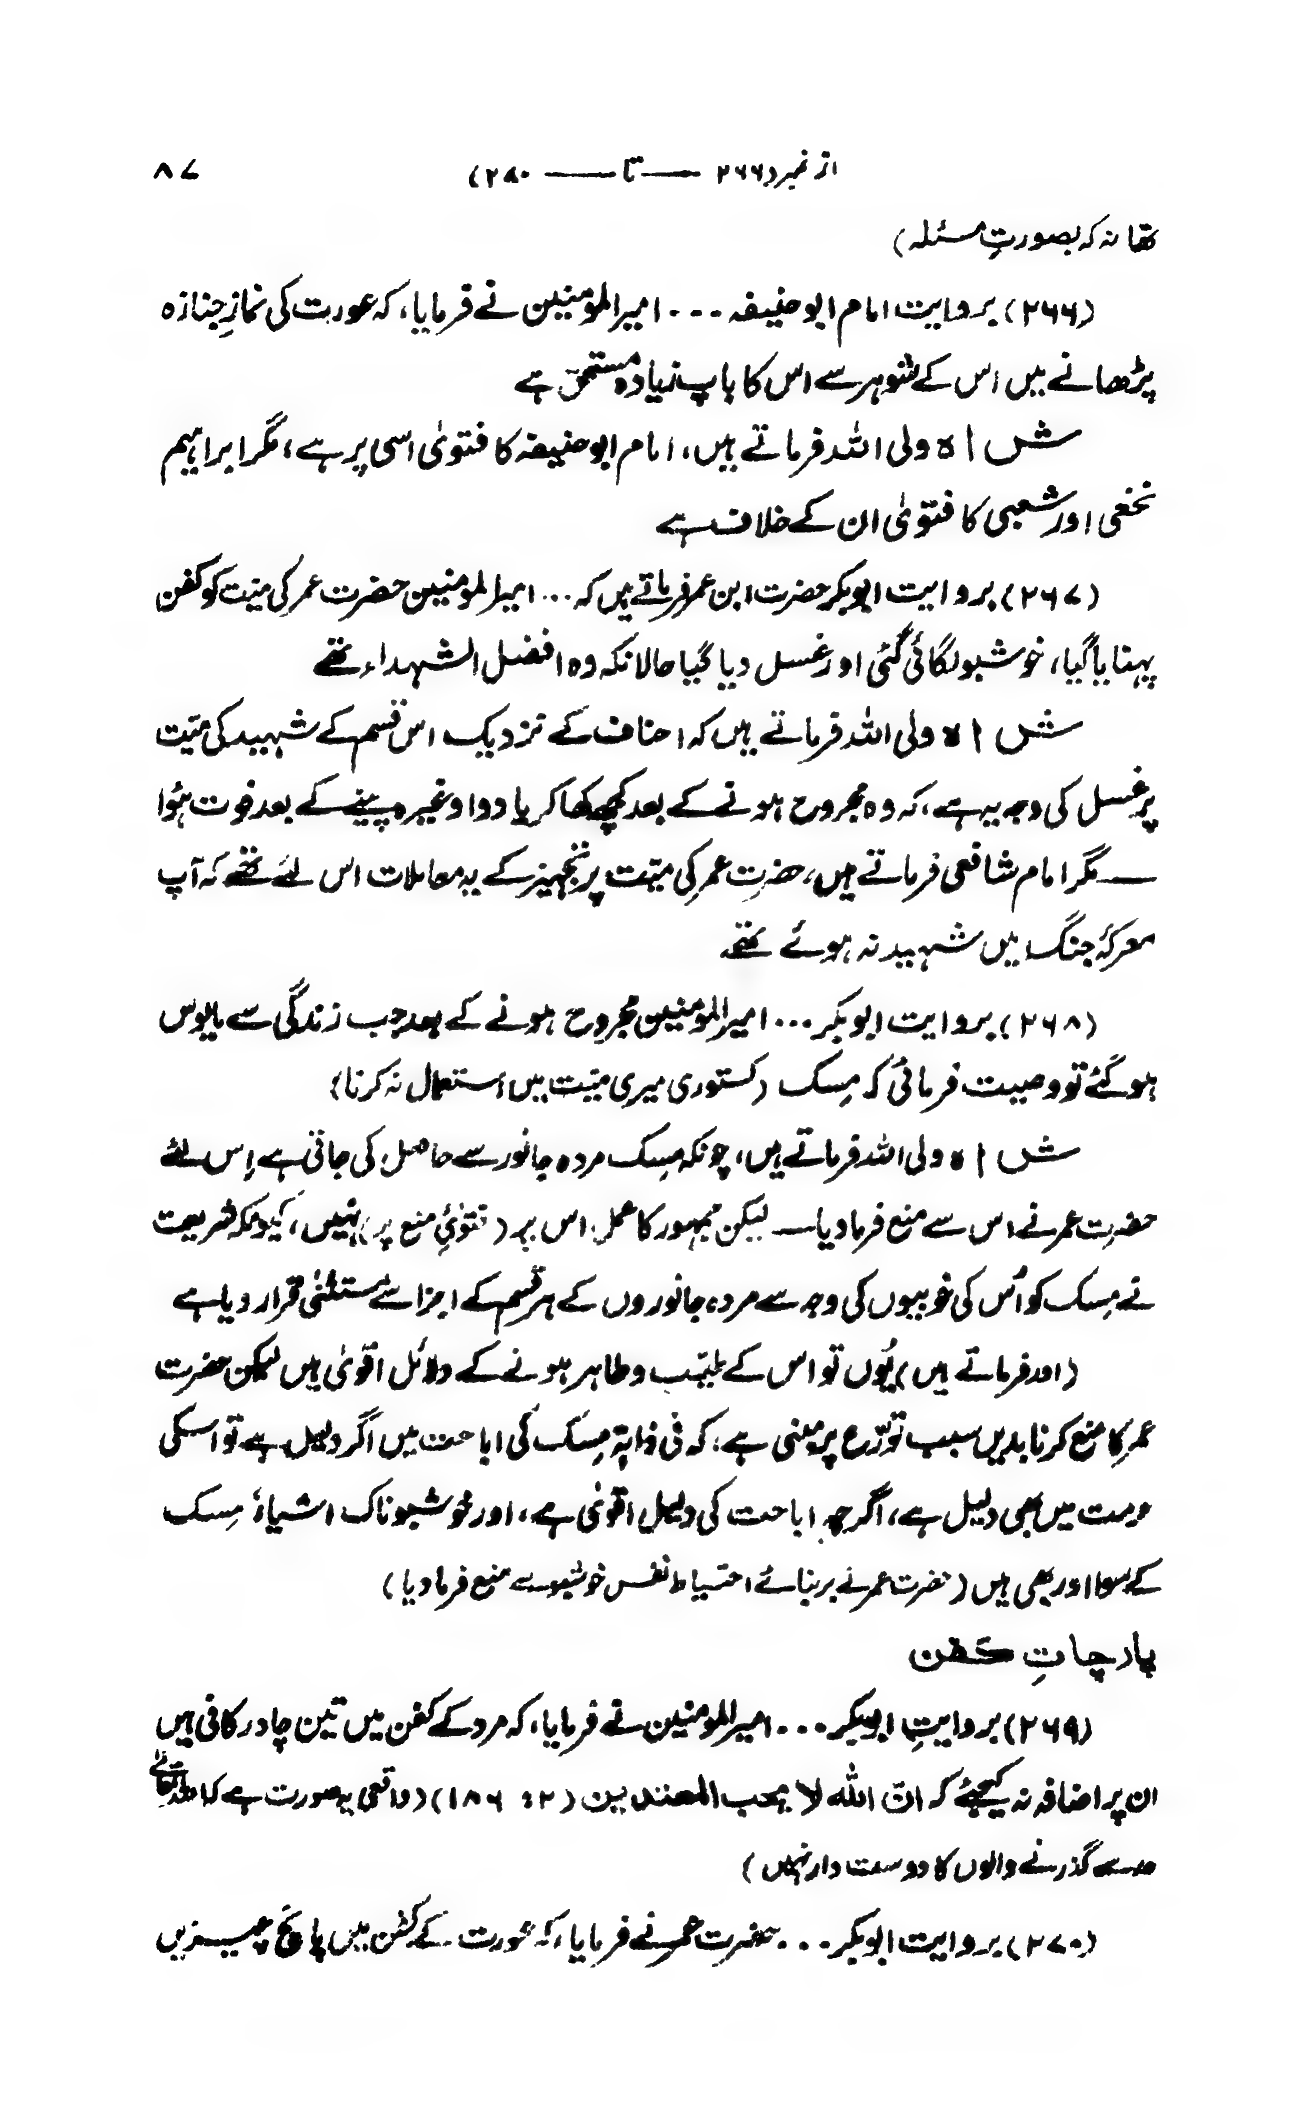 از نمبر (۲۶۶ — تا — ۲۸۰) ۸۷
تھا نہ کہ بصورتِ مسئلہ)
(۲۶۶) بروایت امام ابو حنیفہ ... امیرالمؤمنین نے فرمایا، کہ عورت کی نمازِ جنازہ
پڑھانے میں اس کے شوہر سے اس کا باپ زیادہ مستحق ہے
شاہ ولی اللہ فرماتے ہیں، امام ابو حنیفہ کا فتویٰ اسی پر ہے، مگر ابراہیم
نخعی اور شعبی کا فتویٰ ان کے خلاف ہے
(۲۶۷) بروایت ابوبکر حضرت ابن عمر فرماتے ہیں کہ ... امیرالمومنین حضرت عمر کی میّت کو کفن
پہنایا گیا، خوشبو لگائی گئی اور غسل دیا گیا حالانکہ وہ افضل الشہداء تھے
شاہ ولی اللہ فرماتے ہیں کہ احناف کے نزدیک اس قسم کے شہید کی میّت
پر غسل کی وجہ یہ ہے، کہ وہ مجروح ہونے کے بعد کچھ کھا کر یا دوا وغیرہ پینے کے بعد فوت ہُوا
— مگر امام شافعی فرماتے ہیں، حضرت عمر کی میّت پر تجہیز کے یہ معاملات اس لئے تھے کہ آپ
معرکۂ جنگ میں شہید نہ ہوئے تھے
(۲۶۸) بروایت ابوبکر ... امیرالمؤمنین مجروح ہونے کے بعد جب زندگی سے مایوس
ہو گئے تو وصیت فرمائی کہ مِسک (کستوری میری میّت میں استعمال نہ کرنا)
شاہ ولی اللہ فرماتے ہیں، چونکہ مِسک مردہ جانور سے حاصل کی جاتی ہے اِس لئے
حضرت عمر نے اس سے منع فرما دیا — لیکن جمہور کا عمل اس پر (فتویٰ منع پر) نہیں، کیونکہ شریعت
نے مِسک کو اُس کی خوبیوں کی وجہ سے مردہ جانوروں کے ہر قسم کے اجزا سے مستثنیٰ قرار دیا ہے
(اور فرماتے ہیں) یُوں تو اس کے طیّب و طاہر ہونے کے دلائل اقویٰ ہیں لیکن حضرت
عمر کا منع کرنا بدیں سبب تورّع پر مبنی ہے، کہ فی ذاتہٖ مِسک کی اباحت میں اگر دلیل ہے تو اسکی
حرمت میں بھی دلیل ہے، اگرچہ اباحت کی دلیل اقویٰ ہے، اور خوشبوناک اشیاء مِسک
کے سوا اور بھی ہیں (حضرت عمر نے بربنائے احتیاط نفس خوشبو سے منع فرما دیا)
پارچاتِ کفن
(۲۶۹) بروایتِ ابوبکر ... امیرالمومنین نے فرمایا، کہ مرد کے کفن میں تین چادر کافی ہیں
ان پر اضافہ نہ کیجئے کہ انّ اللہ لا یحب المعتدین (۲: ۱۸۶) (واقعی یہ صورت ہے کہ اللہ تعالےٰ
حد سے گذرنے والوں کا دوست دار نہیں)
(۲۷۰) بروایت ابوبکر ... حضرت عمر نے فرمایا، کہ عورت کے کفن میں پانچ چیزیں